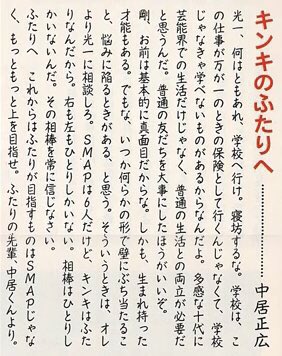 キンキのふたりへ…………中居正広
光一、何はともあれ、学校へ行け。寝坊するな。学校は、こ
の仕事が万が一のときの保険として行くんじゃなくて、学校
じゃなきゃ学べないものがあるからなんだよ。多感な十代に
芸能界での生活だけじゃなく、普通の生活との両立が必要だ
と思うんだ。普通の友だちを大事にしたほうがいいぞ。
剛、お前は基本的に真面目だからな。しかも、生まれ持った
才能もある。でもな、いつか何らかの形で壁にぶち当たるこ
と、悩みに陥るときがある、と思う。そういうときは、オレ
より光一に相談しろ。SMAPは6人だけど、キンキはふた
りなんだから。右も左もひとりしかいない。相棒はひとりし
かいないんだ。その相棒を常に信じなさい。
ふたりへ これからはふたりが目指すものはSMAPじゃな
く、もっともっと上を目指せ。 ふたりの先輩、中居くんより。